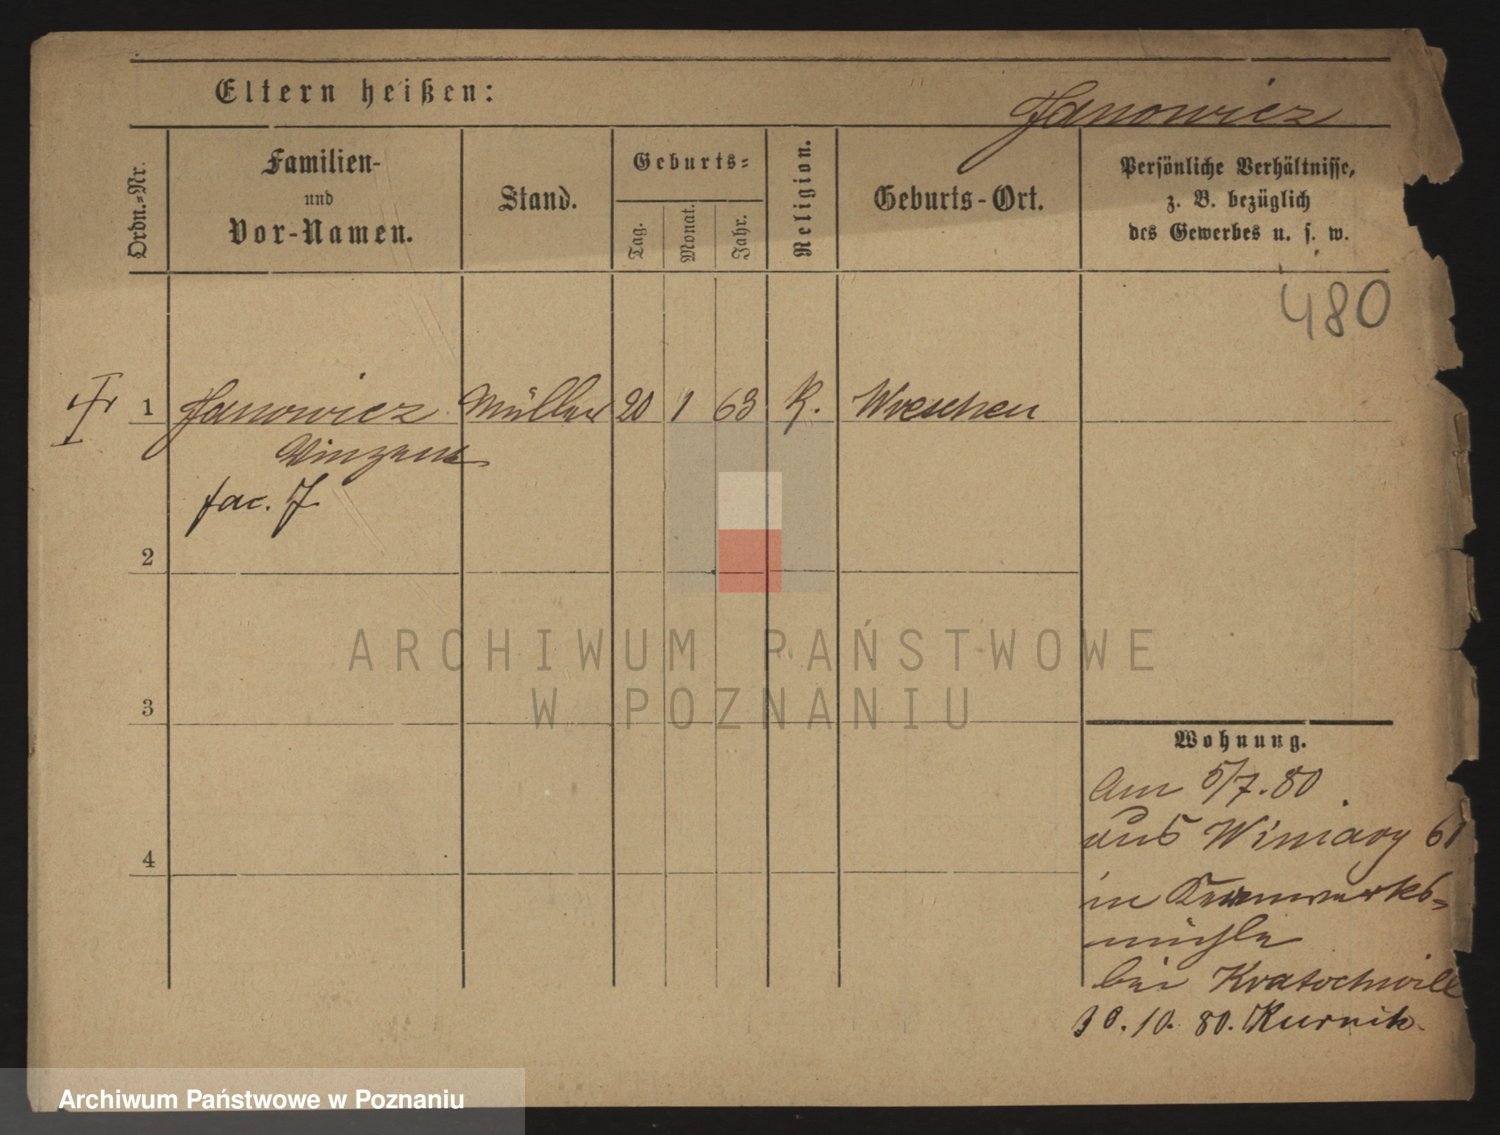 Eltern heißen:
Janowicz
Ordn.-Nr.
Familien-
und
Vor-Namen.
Stand.
Geburts-
Tag.
Monat.
Jahr.
Religion.
Geburts-Ort.
Persönliche Verhältnisse,
z. B. bezüglich
des Gewerbes u. s. w.
480
1 Janowicz Müller 20 1 63 K. Wreschen
Vinzent
fac. J
2
3
4
Wohnung.
Am 5/7.80
aus Winiary 61
in Kernwerks-
mühle
bei Kratochwill
30.10.80. Kurnik.
ARCHIWUM PAŃSTWOWE
W POZNANIU
Archiwum Państwowe w Poznaniu